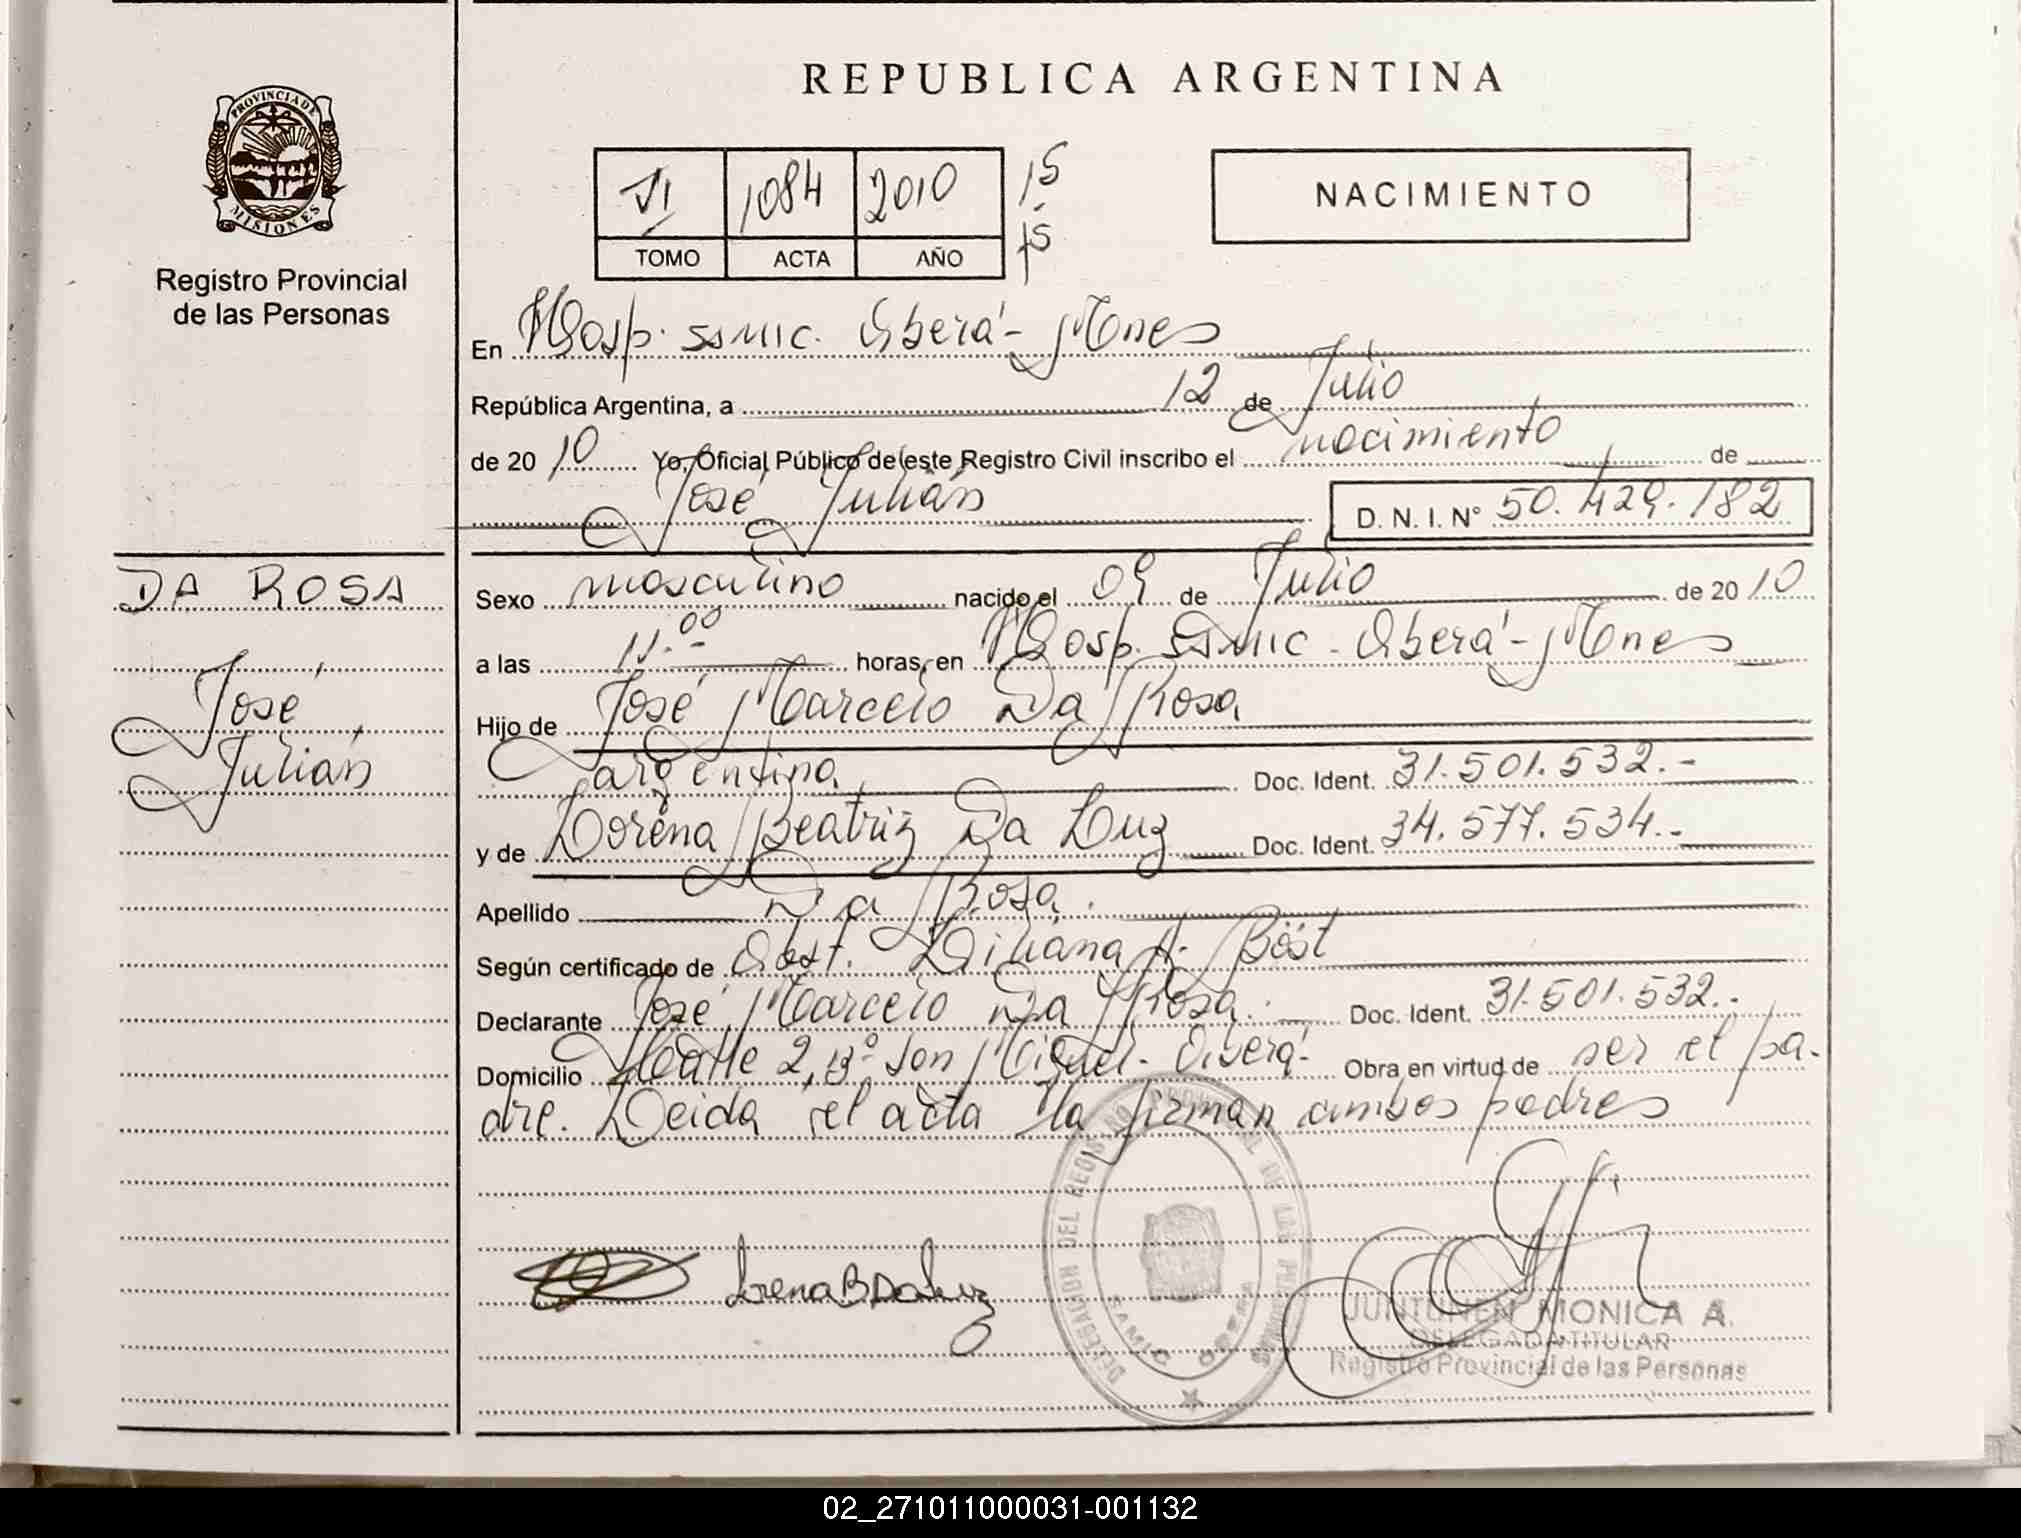 REPUBLICA ARGENTINA
PROVINCIA DE
MISIONES
Registro Provincial
de las Personas
VI 1084 2010 15
15
TOMO ACTA AÑO
NACIMIENTO
En Hosp. SAMIC. Oberá - Mnes
República Argentina, a 12 de Julio
de 20 10 Yo, Oficial Público de este Registro Civil inscribo el nacimiento de
José Julián
D. N. I. N° 50.429.182
DA ROSA
José
Julián
Sexo masculino nacido el 09 de Julio de 20 10
a las 11.00 horas, en Hosp. SAMIC - Oberá - Mnes
Hijo de José Marcelo Da Rosa
argentina Doc. Ident. 31.501.532.-
y de Lorena Beatriz Da Luz Doc. Ident. 34.577.534.-
Apellido Da Rosa.
Según certificado de Obst. Liliana A. Böst
Declarante José Marcelo Da Rosa. Doc. Ident. 31.501.532.-
Domicilio Calle 2, B° San Miguel - Oberá - Obra en virtud de ser el pa-
dre. Leida el acta la firman ambos padres
Lorena B Da Luz
DELEGACION DEL REGISTRO PROVINCIAL DE LAS PERSONAS
SAMIC OBERA
JUNTUNEN MONICA A.
DELEGADA TITULAR
Registro Provincial de las Personas
02_271011000031-001132